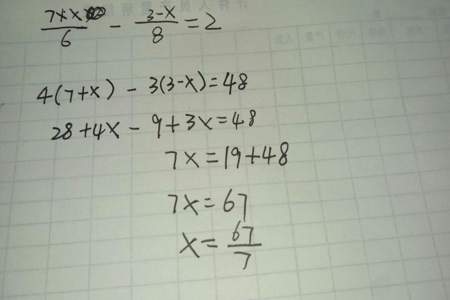 (7+x)/6 - (3-x)/8 = 2
4(7+x) - 3(3-x)=48
28+4x - 9+3x=48
7x = 19+48
7x = 67
x = 67/7